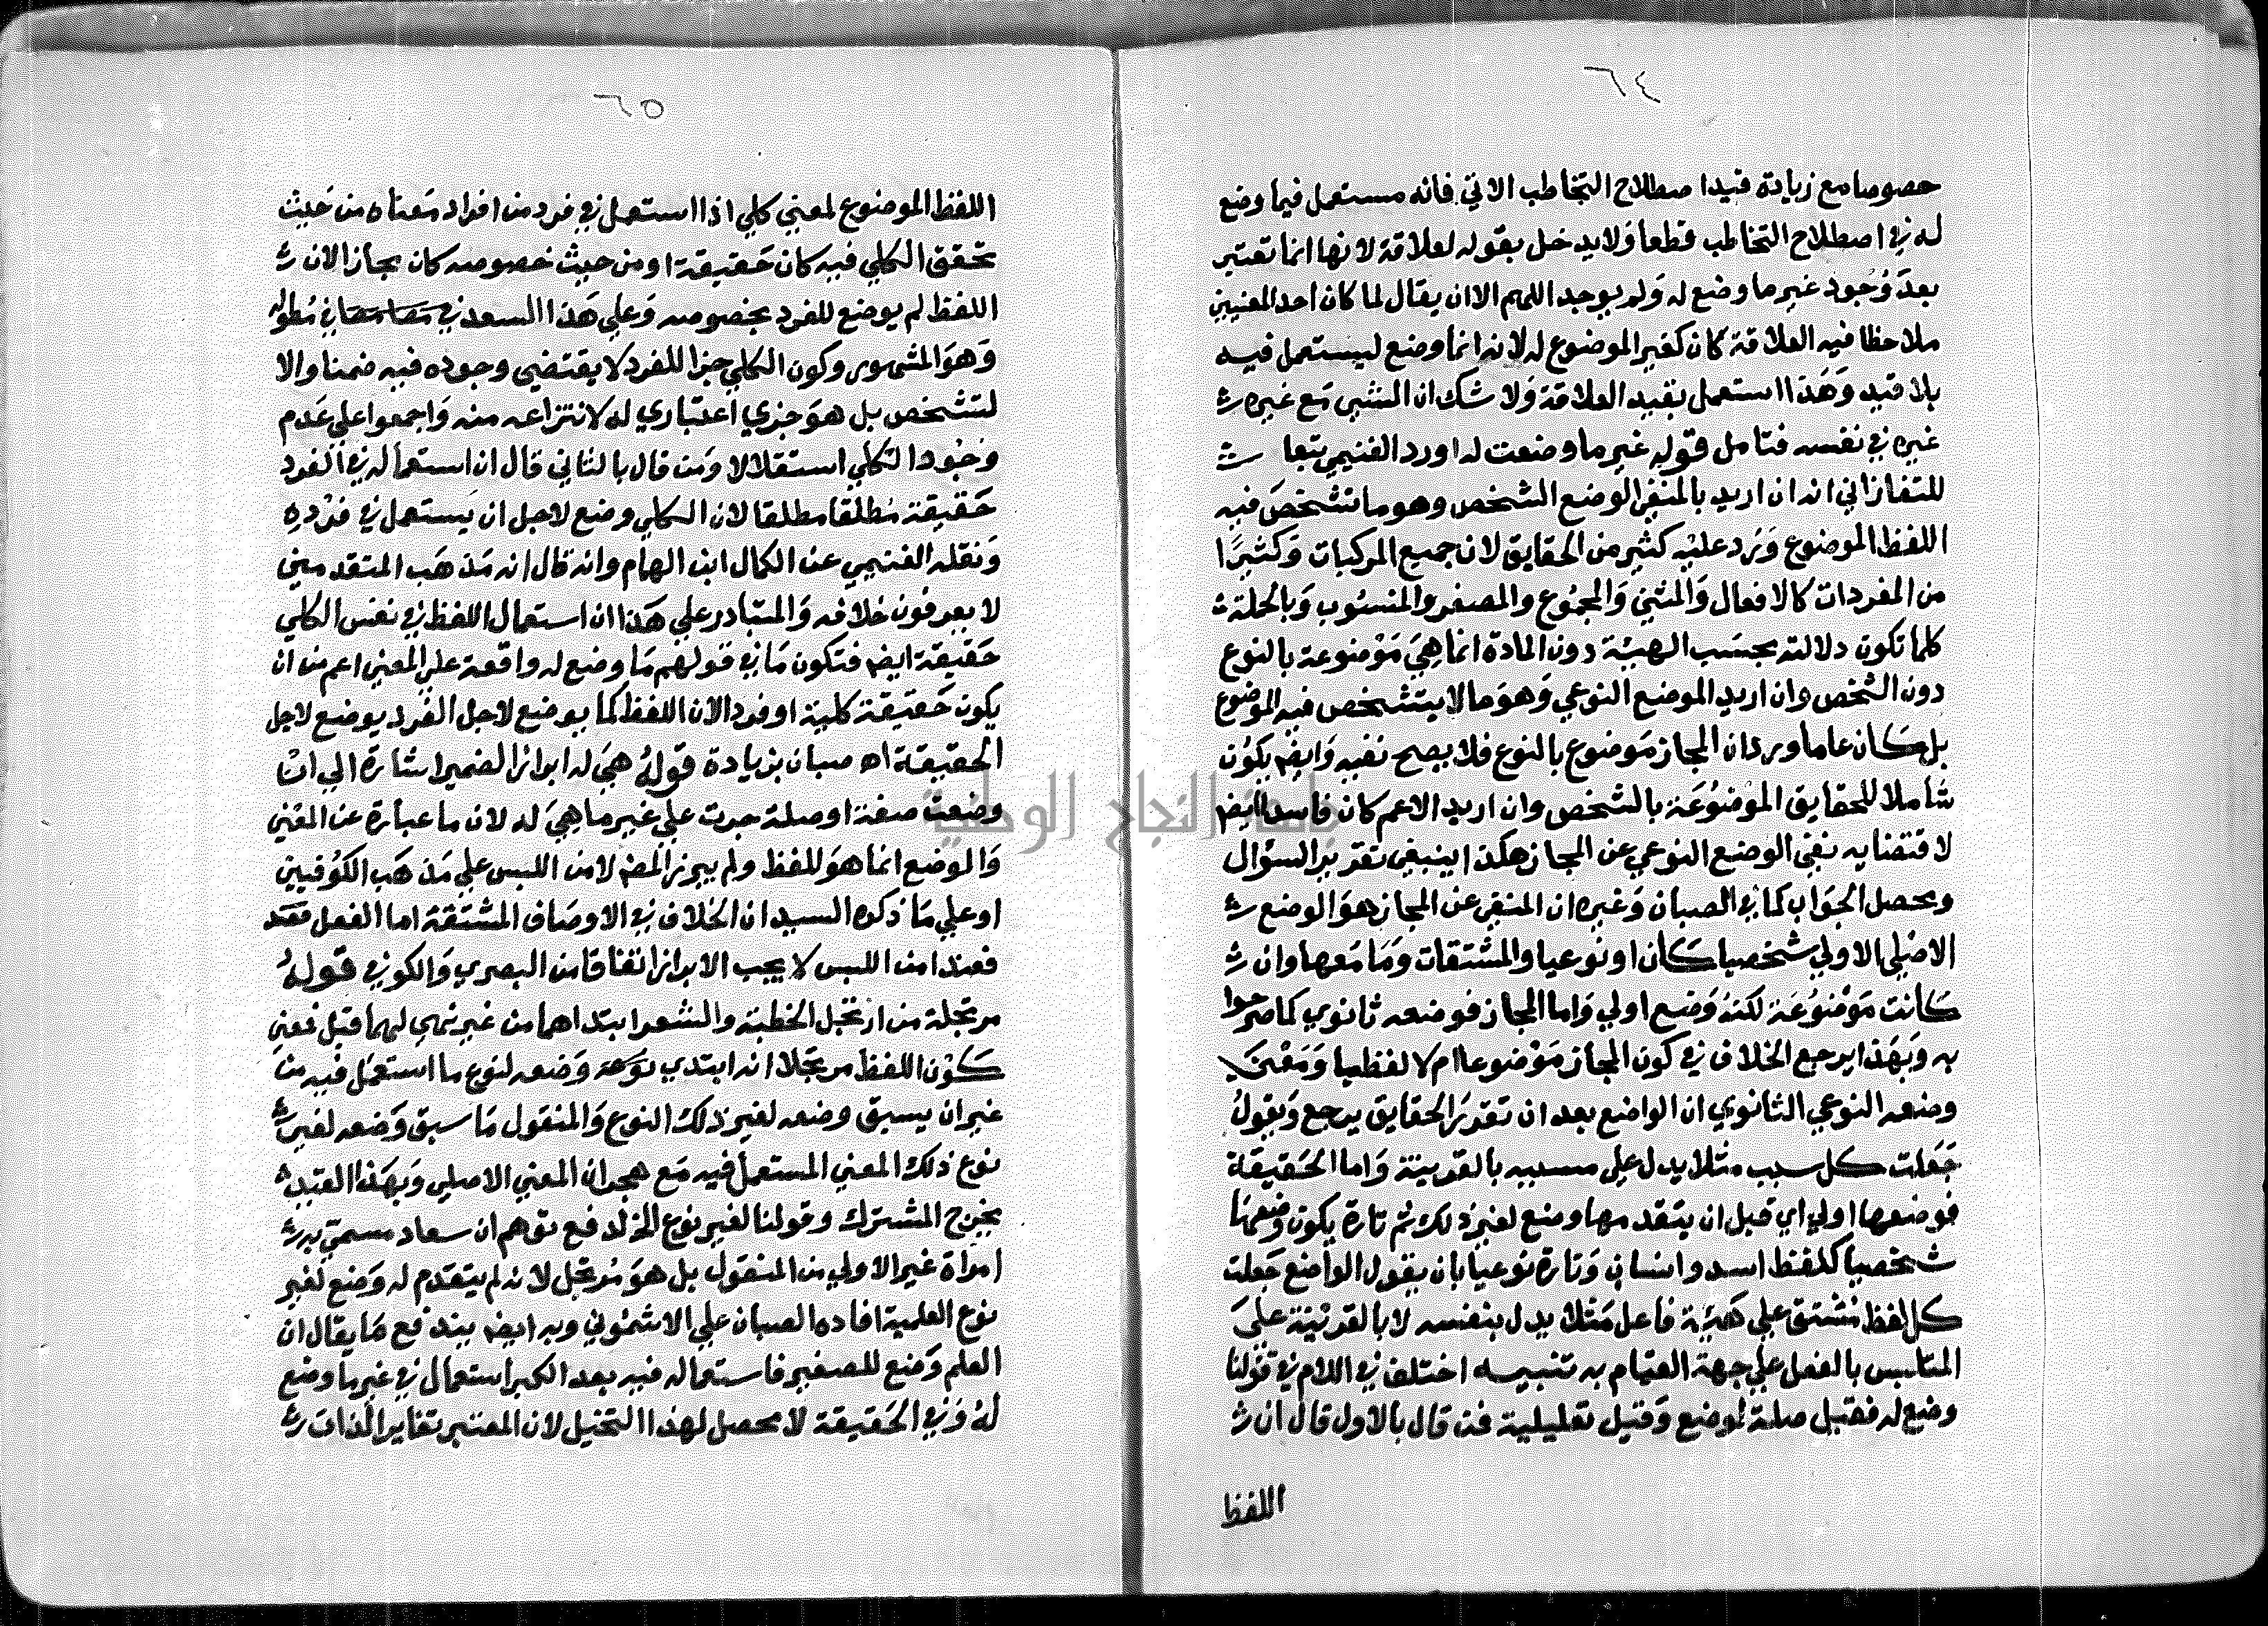 ٦٤
حصوصا مع زيادة قيد اصطلاح التخاطب الاتي فانه مستعمل فيما وضع
له في اصطلاح التخاطب قطعا ولا يدخل بقوله لعلاقة لانها انما تعتبر
بعد وجود غير ما وضع له ولم يوجد اللهم الا ان يقال لما كان احد المعنيين
ملاحظا فيه العلاقة كان كغير الموضوع له لانه انما وضع ليستعمل فيه
بلا قيد وهذا استعمل بقيد العلاقة ولا شك ان الشي مع غيره
غيره في نفسه فتامل قوله غير ما وضعت له اورد الغنيمي تبعا
للتفازاني انه ان اريد بالمنفي الوضع الشخص وهو ما تشخص فيه
اللفظ الموضوع ورد عليه كثير من الحقايق لان جميع المركبات وكثيرا
من المفردات كالافعال والمثني والمجموع والمصغر والمنسوب وبالجلة
كلما تكون دلالته بحسب الهيئة دون المادة انما هي موضوعة بالنوع
دون الشخص وان اريد الموضع النوعي وهو ما لا يتشخص فيه الموضوع
بل كان عاما ورد ان المجاز موضوع بالنوع فلا يصح نفيه وايض يكون
شاملا للحقايق الموضوعة بالشخص وان اريد الاعم كان فاسدا ايض
لاقتضايه نفي الوضع النوعي عن المجاز هكذا ينبغي تقدير السؤال
ويحصل الجواب كما في الصبان وغيره ان المنفي عن المجاز هو الوضع
الاصلي الاولي شخصيا كان او نوعيا والمشتقات وما معها وان
كانت موضوعة لكنه وضع اولي واما المجاز فوضعه ثانوي كما صرحوا
به وبهذا يرجع الخلاف في كون المجاز موضوعا ام لا لفظيا ومعنى
وضعه النوعي الثانوي ان الواضع بعد ان تقدر الحقايق يرجع ويقول
جعلت كل سبب مثلا يدل علي مسببه بالقرينة واما الحقيقة
فوضعها اولي اي قبل ان يتقدمها وضع لغير ذلك ثم تارة يكون وضعها
شخصيا كلفظ اسد وانسان وتارة نوعيا بان يقول الواضع جعلت
كل لفظ مشتق علي هيئة فاعل مثلا يدل بنفسه لا بالقرينة على
المتلبس بالفعل علي جهة القيام به تنبيه اختلف في اللام في قولنا
وضع له فقيل صلة لوضع وقيل تعليلية فمن قال بالاول قال ان
اللفظ
٦٥
اللفظ الموضوع لمعني كلي اذا استعمل في فرد من افراد معناه من حيث
تحقق الكلي فيه كان حقيقة او من حيث خصوصه كان مجازا لان
اللفظ لم يوضع للفرد بخصوصه وعلي هذا السعد في مطوله
وهو المشهور وكون الكلي جزا للفرد لا يقتضي وجوده فيه ضمنا والا
لتشخص بل هو جزي اعتباري له لانتزاعه منه واجمعوا علي عدم
وجود الكلي استقلالا ومن قال بالثاني قال ان استعماله في الفرد
حقيقة مطلقا مطلقا لان الكلي وضع لاجل ان يستعمل في فرده
ونقله الغنيمي عن الكمال ابن الهمام وانه قال انه مذهب المتقدمين
لا يعرفون خلافه والمتبادر علي هذا ان استعمال اللفظ في نفس الكلي
حقيقة ايض فتكون ما في قولهم ما وضع له واقعة علي المعني اعم من ان
يكون حقيقة كلية او فردا لان اللفظ كما يوضع لاجل الفرد يوضع لاجل
الحقيقة اه صبان بزيادة قوله هي له ابراز الضمير اشارة الي ان
وضعت صفة او صلة جرت علي غير ما هي له لان ما عبارة عن المعني
والوضع انما هو للفظ ولم يبرز المض لامن اللبس علي مذهب الكوفيين
او علي ما ذكره السيد ان الخلاف في الاوصاف المشتقة اما الفعل
فعند امن اللبس لا يجب الابراز اتفاقا من البصري والكوفي قوله
مرتجلة من ارتجل الخطبة والشعر ابتداهما من غير تهي لهما قبل فمعنى
كون اللفظ مرتجلا انه ابتدي وضعه لنوع ما استعمل فيه من
غير ان يسبق وضعه لغير ذلك النوع والمنقول ما سبق وضعه لغير
نوع ذلك المعني المستعمل فيه مع هجران المعني الاصلي وبهذا القيد
يخرج المشترك وقولنا لغير نوع الخ لدفع توهم ان سعاد مسمي به
امراة غير الاولي من المنقول بل هو مرتجل لانه لم يتقدم له وضع لغير
نوع العلمية افاده الصبان علي الاشموني وبه ايض يندفع ما يقال ان
العلم وضع للصغير فاستعماله فيه بعد الكبر استعمال في غير ما وضع
له وفي الحقيقة لا محصل لهذا التخيل لان المعتبر تغاير الذات
جامعة النجاح الوطنية